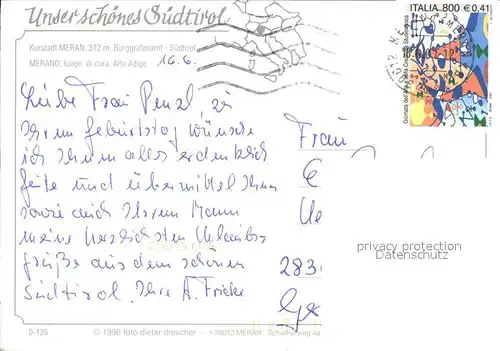 Unser schönes Südtirol
ITALIA 800 € 0,41
Kurstadt MERAN, 312 m, Burggrafenamt - Südtirol
MERANO, luogo di cura, Alto Adige
16.6.
Liebe Frau Penzl, zu
Ihrem Geburtstag wünsche
ich Ihnen alles erdenklich
Gute und übermittel Ihnen
sowie auch Ihrem Mann
meine herzlichsten Urlaubs-
grüße aus dem schönen
Südtirol. Ihre A. Fricke
Frau
283
privacy protection
Datenschutz
9-135 © 1996 foto dieter drescher - I-39012 MERAN - Schaffer